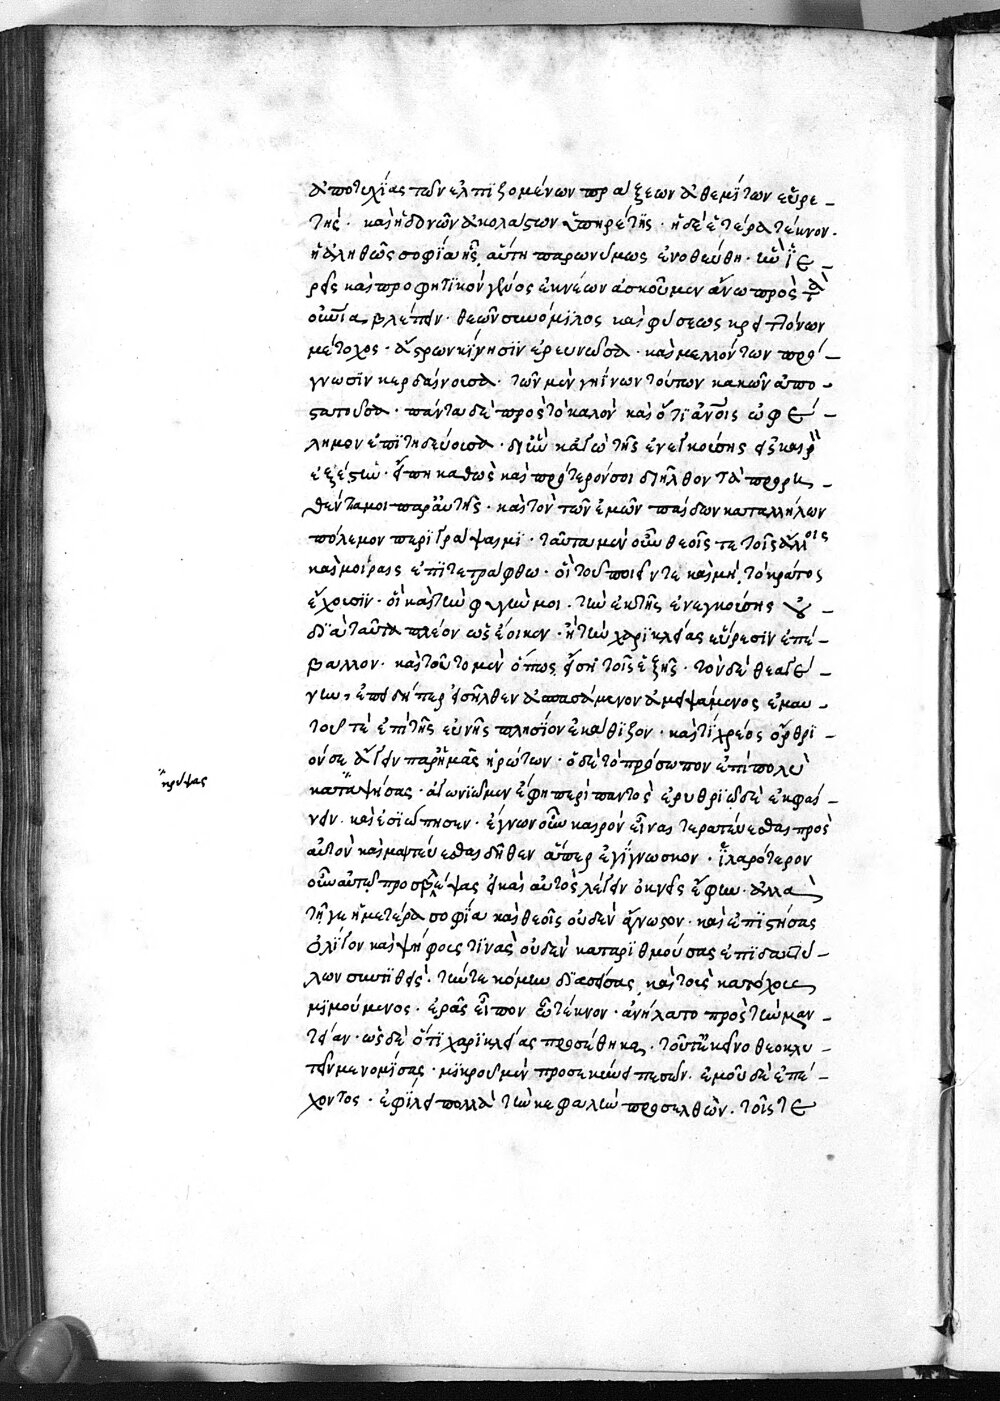 ἀποτυχίας τῶν ἐλπιζομένων πράξεων ἀθεμίτων εὑρε-
τής· καὶ ἡδονῶν ἀκολάστων ὑπηρέτης· ἡ δὲ ἑτέρα τέκνον·
ἡ ἀληθῶς σοφία ἧς αὕτη παρωνύμως ἐνοθεύθη· ἣν ἱε-
ρεῖς καὶ προφητικὸν γένος ἐκ νέων ἀσκοῦμεν ἄνω πρὸς τὰ
οὐράνια βλέπει· θεῶν συνόμιλος καὶ φύσεως κρειττόνων
μέτοχος· ἄστρων κίνησιν ἐρευνῶσα· καὶ μελλόντων πρό-
γνωσιν κερδαίνουσα· τῶν μὲν γηΐνων τούτων κακῶν ἀπο-
στατοῦσα· πάντα δὲ πρὸς τὸ καλὸν καὶ ὅτι ἀνοις ὠφέ-
λημον ἐπιτηδεύουσα· δι' ἣν κἀγὼ τῆς ἐνεγκούσης εἰς καιρὸν
ἐξέστην· εἴ πη καθὼς καὶ πρότερόν σοι διῆλθον τὰ προρρη-
θέντα μοι παρ' αὐτῆς· καὶ τὸν τῶν ἐμῶν παίδων κατ' ἀλλήλων
πόλεμον περιγράψαιμι· ταῦτα μὲν οὖν θεοῖς τε τοῖς ἄλλοις
καὶ μοίραις ἐπιτετράφθω· οἳ τοῦ ποιεῖν τε καὶ μὴ τὸ κράτος
ἔχουσιν· οἳ καὶ τὴν φυγήν μοι τὴν ἐκ τῆς ἐνεγκούσης οὐ
διὰ ταῦτα πλέον ὡς ἔοικεν· ἢ τὴν χαρικλείας εὕρεσιν ἐπέ-
βαλλον· καὶ τοῦτο μὲν ὅπως εἴσῃ τοῖς ἑξῆς· τὸν δὲ θεαγέ-
νην, ἐπειδήπερ εἰσῆλθεν ἀσπασάμενον ἀμειψάμενος ἐμαυ-
τοῦ τε ἐπὶ τῆς εὐνῆς πλησίον ἐκάθιζον· καὶ τί χρέος ὄρθρι-
όν σε ἄγει παρ' ἡμᾶς ἠρώτων· ὁ δὲ τὸ πρόσωπον ἐπιπολὺ
καταψήσας· ἀγωνιῶ μὲν ἔφη περὶ παντὸς ἐρυθριῶ δὲ ἐκφαί-
νειν· καὶ ἐσιώπησεν· ἔγνων οὖν καιρὸν εἶναι τερατεύεσθαι πρὸς
αὐτὸν καὶ μαντεύεσθαι δῆθεν ἅπερ ἐγίγνωσκον· ἱλαρότερον
οὖν αὐτῷ προσβλέψας εἰ καὶ αὐτὸς λέγειν ὀκνεῖς ἔφην· ἀλλὰ
τῇ γε ἡμετέρᾳ σοφίᾳ καὶ θεοῖς οὐδὲν ἄγνωστον· καὶ ἐπιστήσας
ὀλίγον καὶ ψήφους τινὰς οὐδὲν καταριθμούσας ἐπὶ δακτύ-
λων συντιθείς· τήν τε κόμην διασείσας, καὶ τοὺς κατόχους
μιμούμενος· ἐρᾷς εἶπον ὦ τέκνον· ἀνήλατο πρὸς τὴν μαν-
τείαν· ὡς δὲ ὅτι χαρικλείας προσέθηκα· τοῦτ' ἐκεῖνο θεοκλυ-
τεῖν με νομίσας· μικροῦ μὲν προσεκύνει πεσών· ἐμοῦ δὲ ἐπέ-
χοντος· ἐφίλει πολλὰ τὴν κεφαλὴν προσελθὼν· τοῖς τε
κρύψας